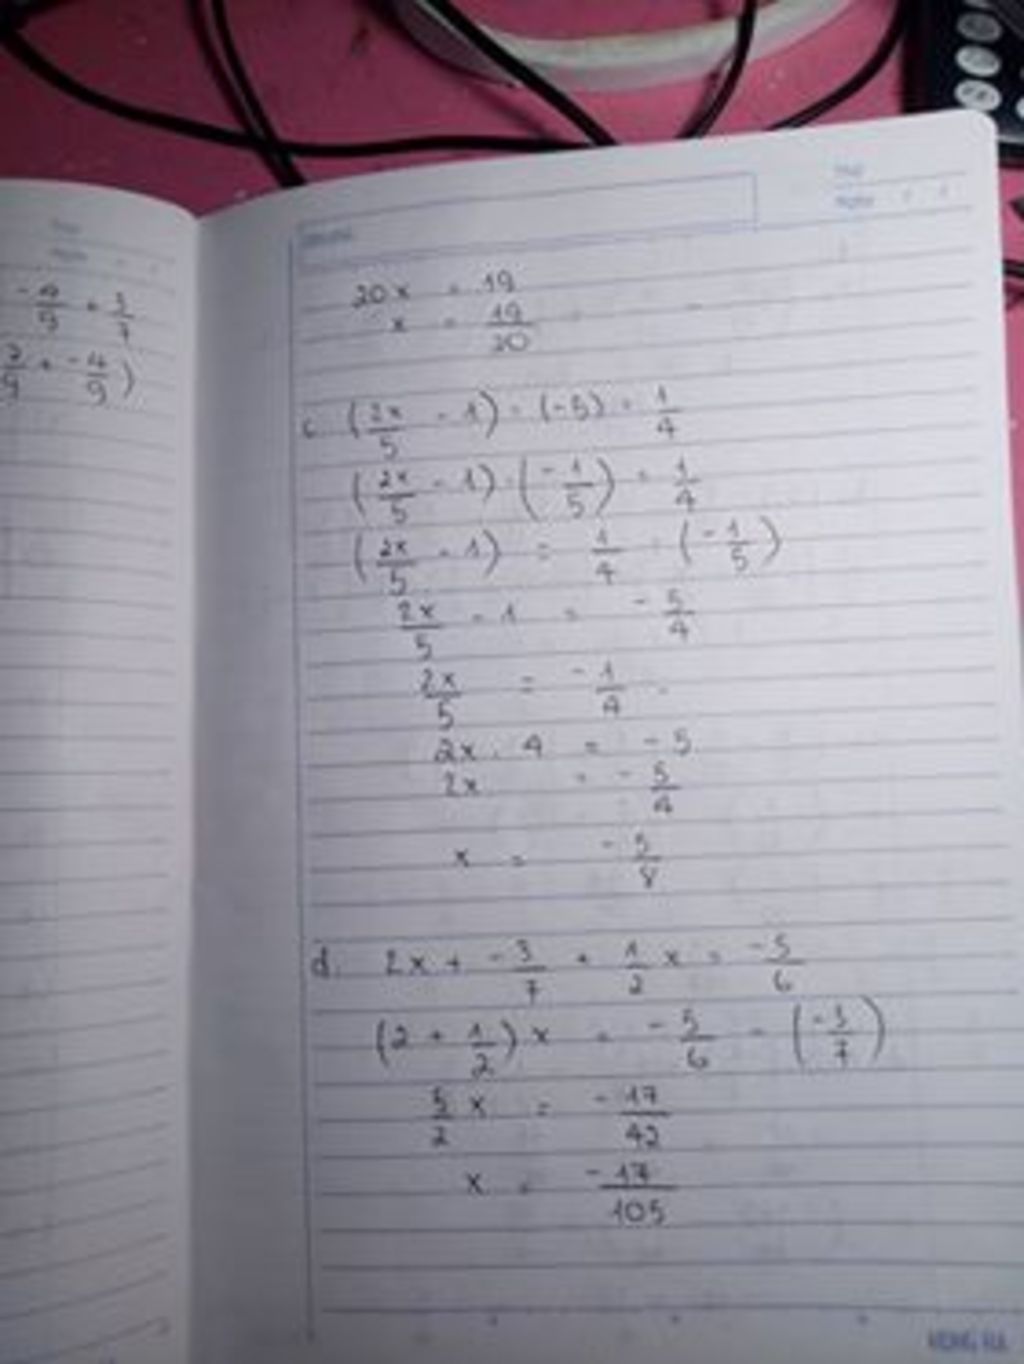 -4/9 + 3/7
+ -4/9 )
20x = 19
x = 19/20
c. (2x/5 - 1) : (-5) = 1/4
(2x/5 - 1) . (-1/5) = 1/4
(2x/5 - 1) = 1/4 : (-1/5)
2x/5 - 1 = -5/4
2x/5 = -1/4
2x . 4 = -5
2x = -5/4
x = -5/8
d. 2x + -3/7 + 1/2 x = -5/6
(2 + 1/2) x = -5/6 - (-3/7)
5/2 x = -17/42
x = -17/105